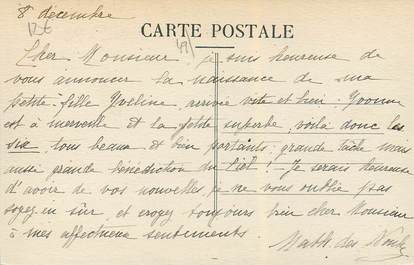 8 décembre
CARTE POSTALE
Cher Monsieur, je suis heureuse de
vous annoncer la naissance de ma
petite-fille Yveline, arrivée vite et bien. Yvonne
est à merveille et la petite superbe, voilà donc les
six, tous beaux et bien portants; grande tâche mais
aussi grande bénédiction du Ciel! Je serais heureuse
d'avoir de vos nouvelles, je ne vous oublie pas
soyez-en sûr, et croyez toujours bien cher Monsieur
à mes affectueux sentiments.